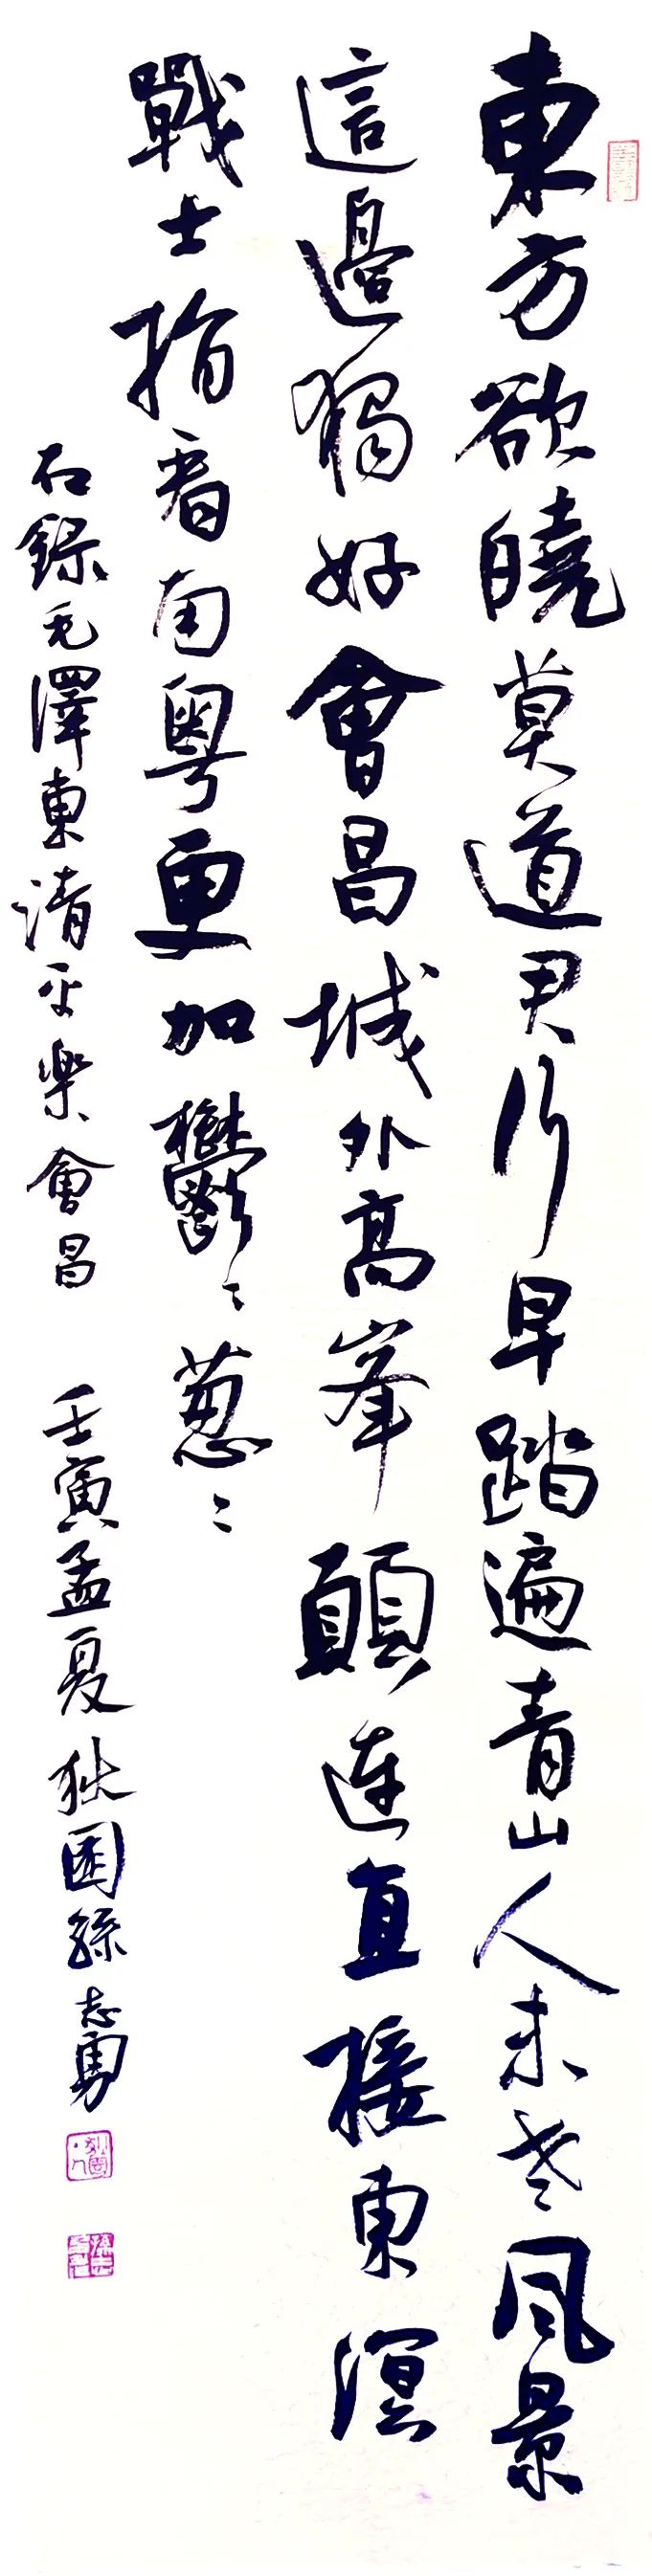 東方欲曉莫道君行早踏遍青山人未老風景
這邊獨好會昌城外高峯顛連直接東溟
戰士指看南粵更加鬱〻葱〻
右錄毛澤東清平樂會昌 壬寅孟夏狄園孫志勇